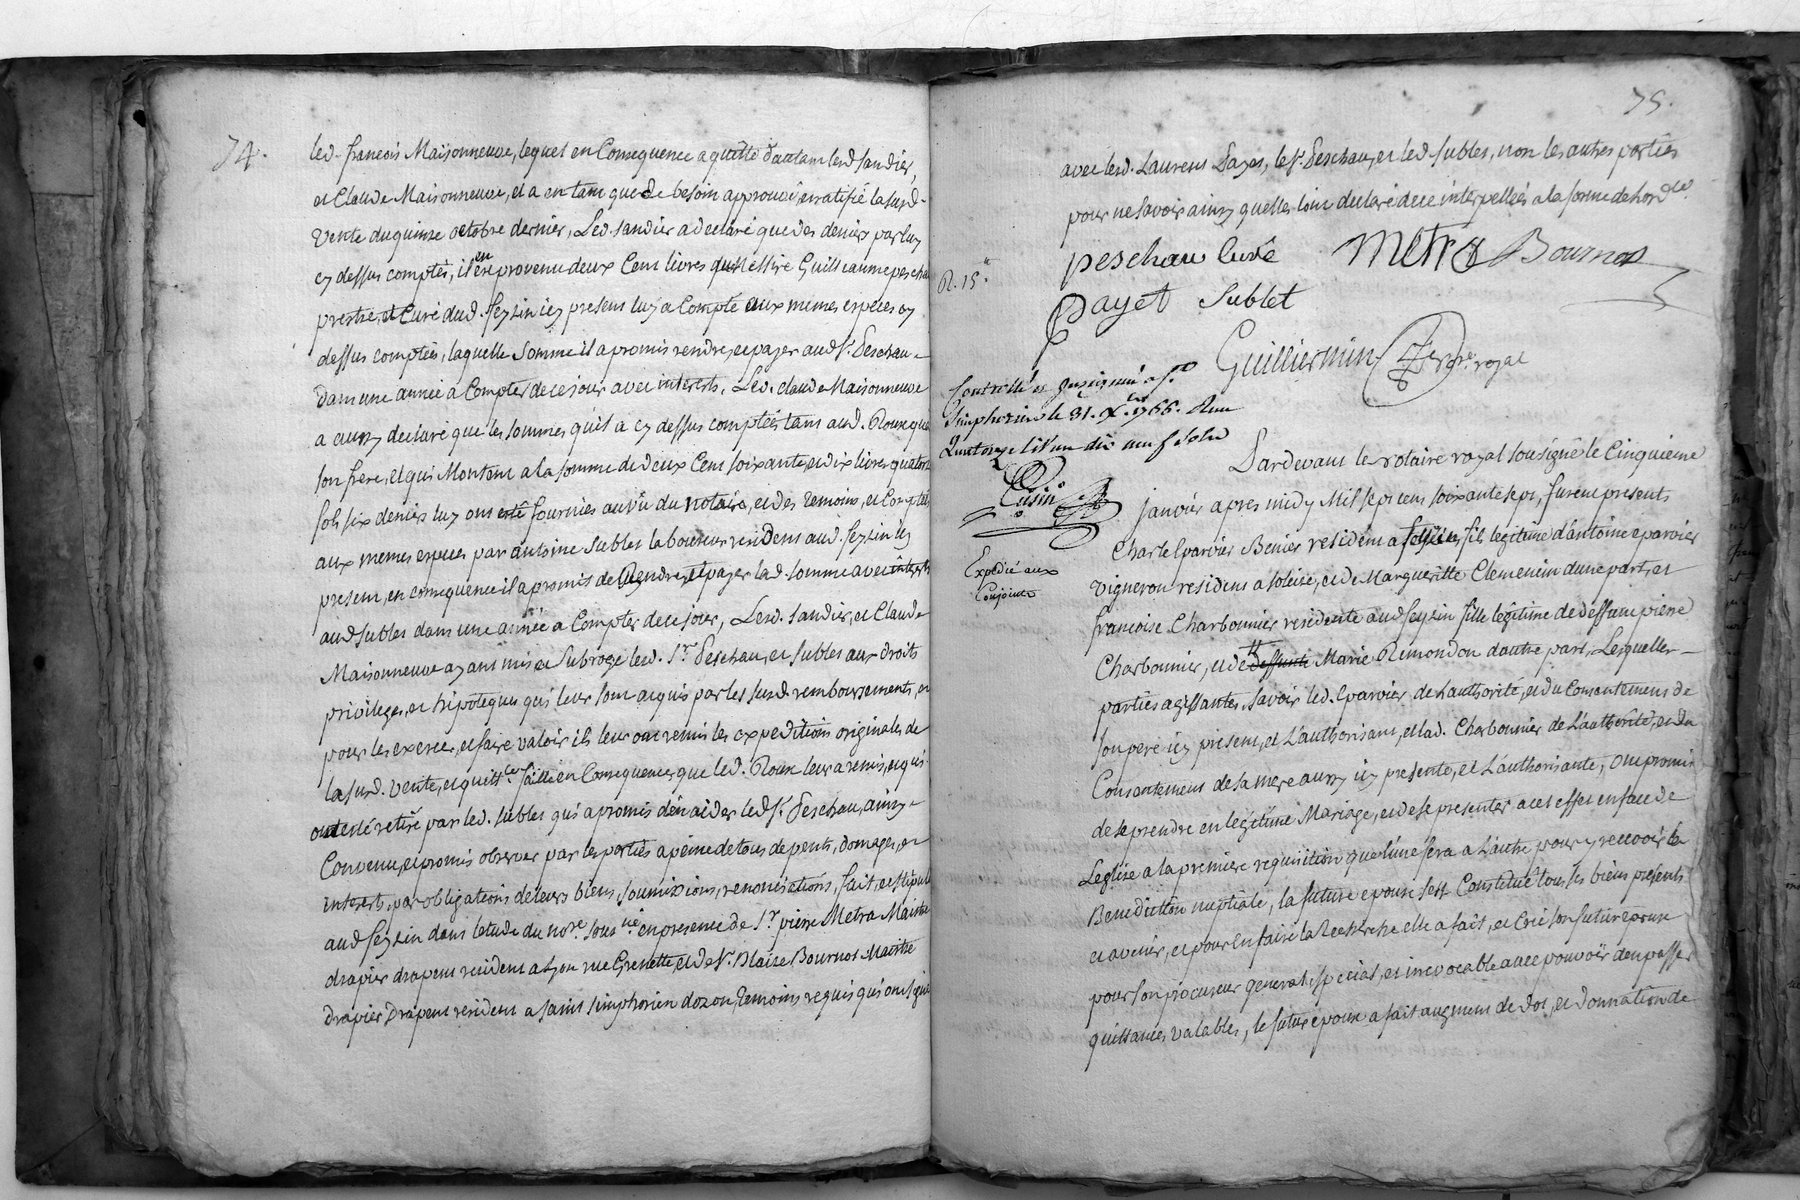 74.
led. francois Maisonneuve, lequel en Consequence a quitté d'autam lesd Sandier,
et Claude Maisonneuve, et a en tam que de besoin approuvé, et ratifié la susd.
Vente du quinze octobre dernier, Led. Sandier a declaré que des deniers par luy
cy dessus comptés, il en est provenu deux Cent livres que Messire Guilleaume peschau
prestre, et Curé dud. feyzin icy present luy a Compté aux memes especes cy
dessus comptées, laquelle Somme il a promis rendre, et payer aud Sr. Peschau
dans une année a Compter de ce jour avec interests. Led. claude Maisonneuve
a aussy declaré que les sommes qu'il a cy dessus comptées tant aud. Roux que
son frere, et qui Montent a la somme de deux Cent soixante, et dix livres quatorze
sols six deniers luy ont esté fournies au vû du notaire, et des temoins, et Comptées
aux memes especes par antoine Sublet laboureur resident aud. feyzin icy
present, en consequence il a promis de Rendre, et payer lad. somme avec interests
aud Sublet dans une année a Compter de ce jour, Lesd. Sandier, et Claude
Maisonneuve ayant mis et Subrogé lesd. Sr. Peschau, et Sublet aux droits
privileges, et hipoteques qui leur sont acquis par les susd. remboursements, et
pour les exercer, et faire valoir ils leur ont remis les expeditions originales de
la susd. vente, et quittces. faitte en Consequence que led. Roux leur a remis, et qui
ont esté retiré par led. sublet qui a promis d'en aider led Sr. Peschau, ainsy
Convenu, et promis observer par les parties a peine de tous depents, domages, et
interests, par obligations de leurs biens, soumissions, renonciations, fait, et stipulé
aud feyzin dans l'etude du nore. sous né en presence de Sr. pierre Metra Maitre
drapier drapant resident a Lyon rue Grenette et de Sr. Blaise Bournot Maitre
drapier Drapant resident a saint simphorien dozon, temoins requis qui ont signé
75.
avec lesd. Laurens Payet, le Sr. Peschau, et led. sublet, non les autres parties
pour ne savoir ainsy quelles l'ont declaré de ce interpellées a la forme de l'ordce.
R. 15.
peschau Curé Metra Bournot
Payet Sublet
Guilliermin nore. royal
Controllé et insinué a St.
Simphorien le 31. Xbre 1766. Reçu
Quatorze livres dix neuf sols
Cusin
Expedié aux
Conjoints
Pardevant le notaire royal sousigné le Cinquieme
janvier apres midy Mil sept cent soixante sept, furent presents
Charle Eparvier Benier resident a feyzin fils legitime d'antoine eparvier
vigneron resident a solaise, et de Margueritte Clemencin d'une part, et
francoise Charbonnier residente aud feyzin fille legitime de deffunt pierre
Charbonnier, et de deffunte Marie Rimondon d'autre part, Lesquelles
parties agissantes, savoir led. Eparvier de l'authorité, et du Consentement de
son pere icy present, et L'authorisant, et lad. Charbonnier de L'authorité, et du
Consentement de sa mere aussy icy presente, et L'authorisante, ont promis
de se prendre en legitime Mariage, et de se presenter a cet effet en face de
L'eglise a la premiere requisition que l'une fera a l'autre pour y recevoir la
Benediction nuptiale, la future epouse s'est Constitué tous ses biens presents
et avenir, et pour En faire la Recherche elle a fait, et Créé son futur epoux
pour son procureur general, special, et irrevocable avec pouvoir d'en passer
quittances valables, le futur epoux a fait augment de dot, et donnation de